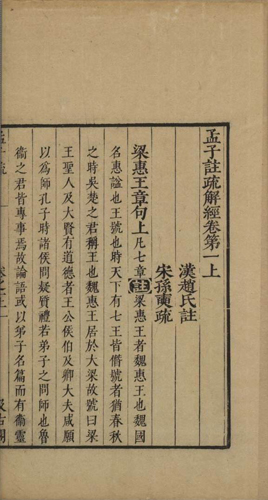 孟子註疏解經卷第一上
漢趙氏註
宋孫奭疏
梁惠王章句上凡七章註梁惠王者魏惠王也魏國
名惠謚也王號也時天下有七王皆僭號者猶春秋
之時吳楚之君稱王也魏惠王居於大梁故號曰梁
王聖人及大賢有道德者王公侯伯及卿大夫咸願
以爲師孔子時諸侯問疑質禮若弟子之問師也魯
衞之君皆專事焉故論語或以弟子名篇而有衞靈
孟子疏
卷之一上
汲古閣